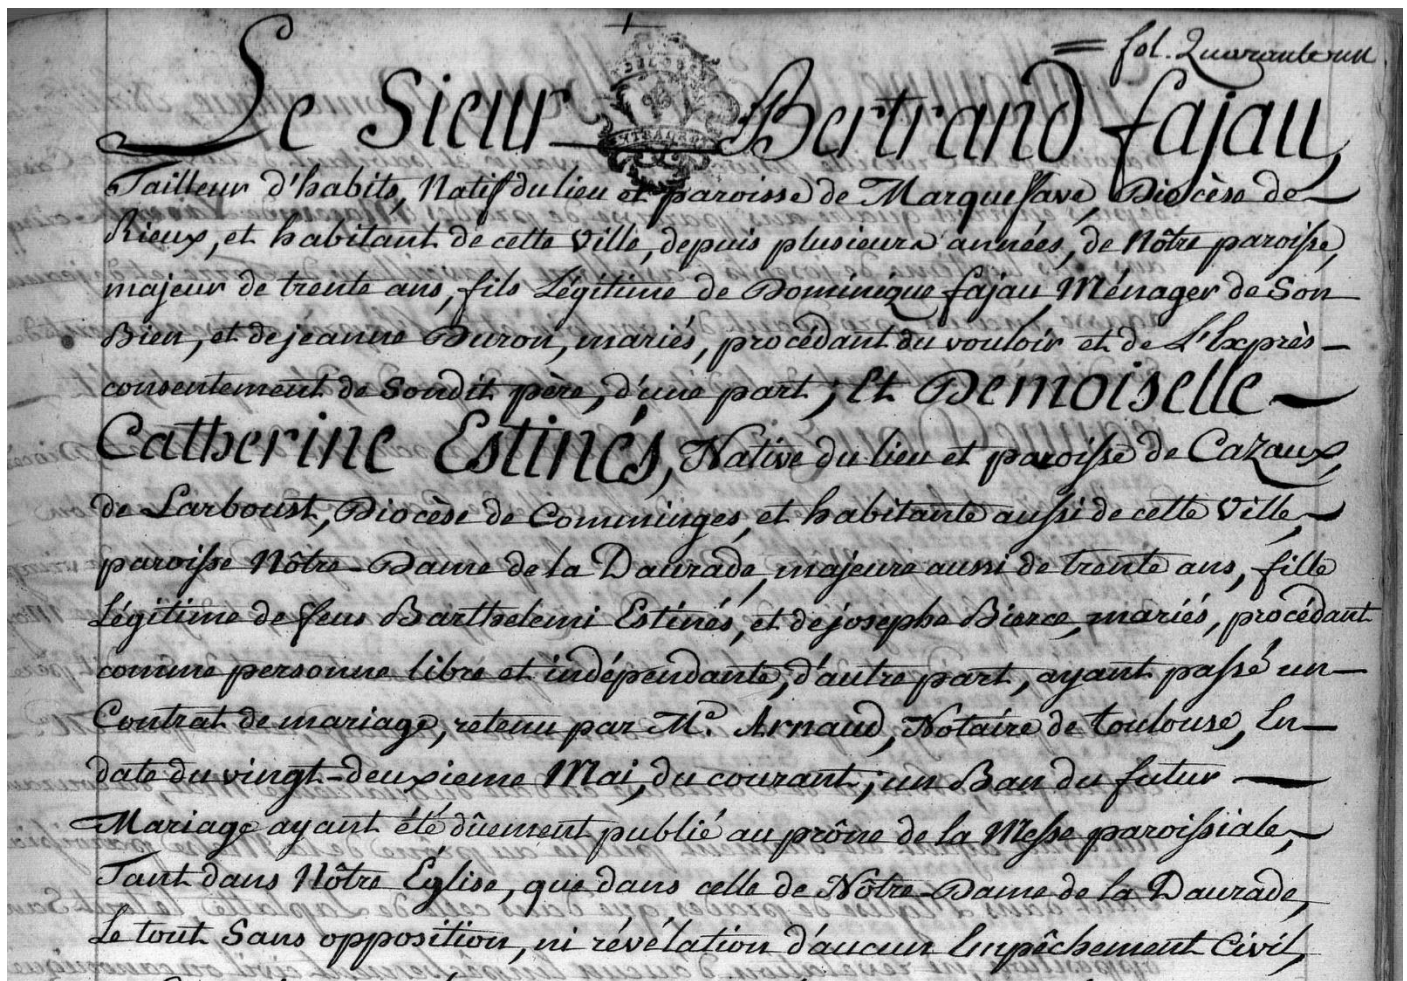 fol. Quarante un
Le Sieur Bertrand fajau,
Tailleur d'habits, Natif du lieu et paroisse de Marquefave, Diocèse de
Rieux, et habitant de cette Ville, depuis plusieurs années, de Nôtre paroisse,
majeur de trente ans, fils Légitime de Dominique fajau, Ménager de Son
Bien, et de jeanne Duron, mariés, procédant du vouloir et de L'Exprès
consentement de Sondit père, d'une part; Et Demoiselle
Catherine Estinés, Native du lieu et paroisse de Cazaux,
de Larboust, Diocèse de Comminges, et habitante aussi de cette Ville,
paroisse Nôtre-Dame de la Daurade, majeure aussi de trente ans, fille
Légitime de feus Barthelemi Estinés, et de josephe Bierce, mariés, procédant
comme personne libre et indépendante, d'autre part, ayant passé un
Contrat de mariage, retenu par Me. Arnaud, Notaire de toulouse, En
date du vingt-deuxieme Mai, du courant; un Ban du futur
Mariage ayant été dûement publié au prône de la Messe paroissiale,
Tant dans Nôtre Église, que dans celle de Nôtre-Dame de la Daurade,
Le tout Sans opposition, ni révélation d'aucun Empêchement Civil,